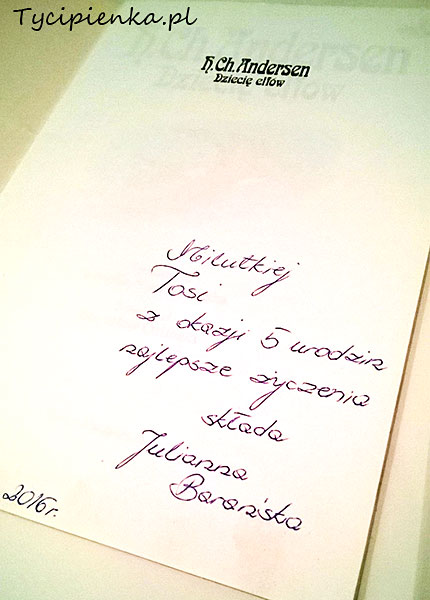 Tycipienka.pl
H. Ch. Andersen
Dziecię elfów
Milutkiej
Tosi
z okazji 5 urodzin
najlepsze życzenia
składa
Julianna
Barańska
2016r.